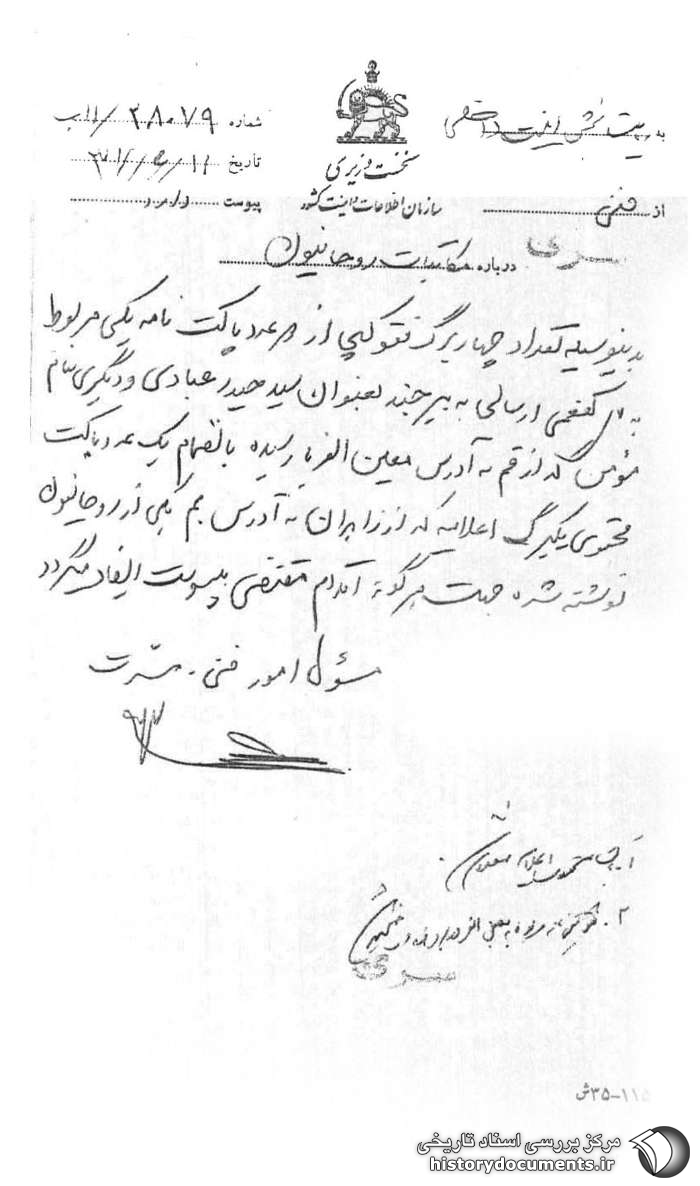 به ریاست بخش امنیت داخلی
شماره ۲۸۰۷۹/۱۱ب
نخست وزیری
تاریخ
سازمان اطلاعات و امنیت کشور
از فنی
پیوست دارد
سری
درباره مکاتبات روحانیون
بدینوسیله تعداد چهار برگ فتوکپی از دو عدد پاکت نامه یکی مربوط
به ارسالی به بیرجند بعنوان سید حیدر عبادی و دیگری بنام
مؤمن که از قم به آدرس معین الغربا رسیده بانضمام یک عدد پاکت
محتوی یکبرگ اعلامیه که از زابران به آدرس بم یکی از روحانیون
نوشته شده جهت هر گونه اقدام مقتضی بپیوست ایفاد میگردد
مسئول امور فنی - مسرت
۱.
۲. فتوکپی
سری
۳۵-۱۱۵ش
مرکز بررسی اسناد تاریخی
historydocuments.ir